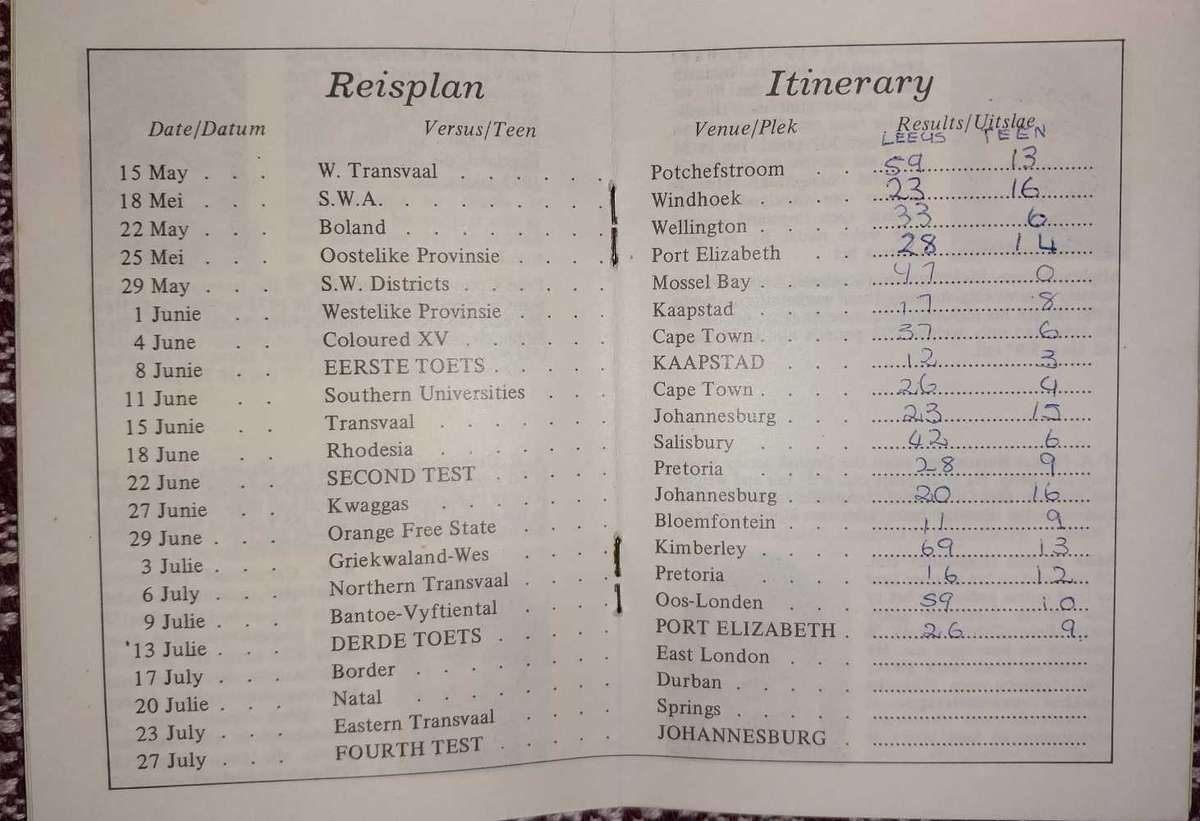 Reisplan Itinerary
Date/Datum Versus/Teen Venue/Plek Results/Uitslae
LEEUS TEEN
15 May . . . W. Transvaal . . . . . . Potchefstroom . . 59 13
18 Mei . . . S.W.A. . . . . . . . . Windhoek . . . . 23 16
22 May . . . Boland . . . . . . . . Wellington . . . . 33 6
25 Mei . . . Oostelike Provinsie . . . . Port Elizabeth . . 28 14
29 May . . . S.W. Districts . . . . . . Mossel Bay . . . . 47 0
1 Junie . . Westelike Provinsie . . . . Kaapstad . . . . 17 8
4 June . . Coloured XV . . . . . . Cape Town . . . . 37 6
8 Junie . . EERSTE TOETS . . . . . KAAPSTAD . . . 12 3
11 June . . Southern Universities . . . Cape Town . . . . 26 4
15 Junie . . Transvaal . . . . . . . Johannesburg . . . 23 15
18 June . . Rhodesia . . . . . . . Salisbury . . . . 42 6
22 June . . SECOND TEST . . . . . Pretoria . . . . 28 9
27 Junie . . Kwaggas . . . . . . . Johannesburg . . . 20 16
29 June . . . Orange Free State . . . . Bloemfontein . . . 11 9
3 Julie . . . Griekwaland-Wes . . . . Kimberley . . . . 69 13
6 July . . . Northern Transvaal . . . . Pretoria . . . . 16 12
9 Julie . . . Bantoe-Vyftiental . . . . Oos-Londen . . . 59 10
13 Julie . . . DERDE TOETS . . . . . PORT ELIZABETH . 26 9
17 July . . . Border . . . . . . . . East London . . .
20 Julie . . . Natal . . . . . . . . Durban . . . . .
23 July . . . Eastern Transvaal . . . . Springs . . . . .
27 July . . . FOURTH TEST . . . . . JOHANNESBURG .